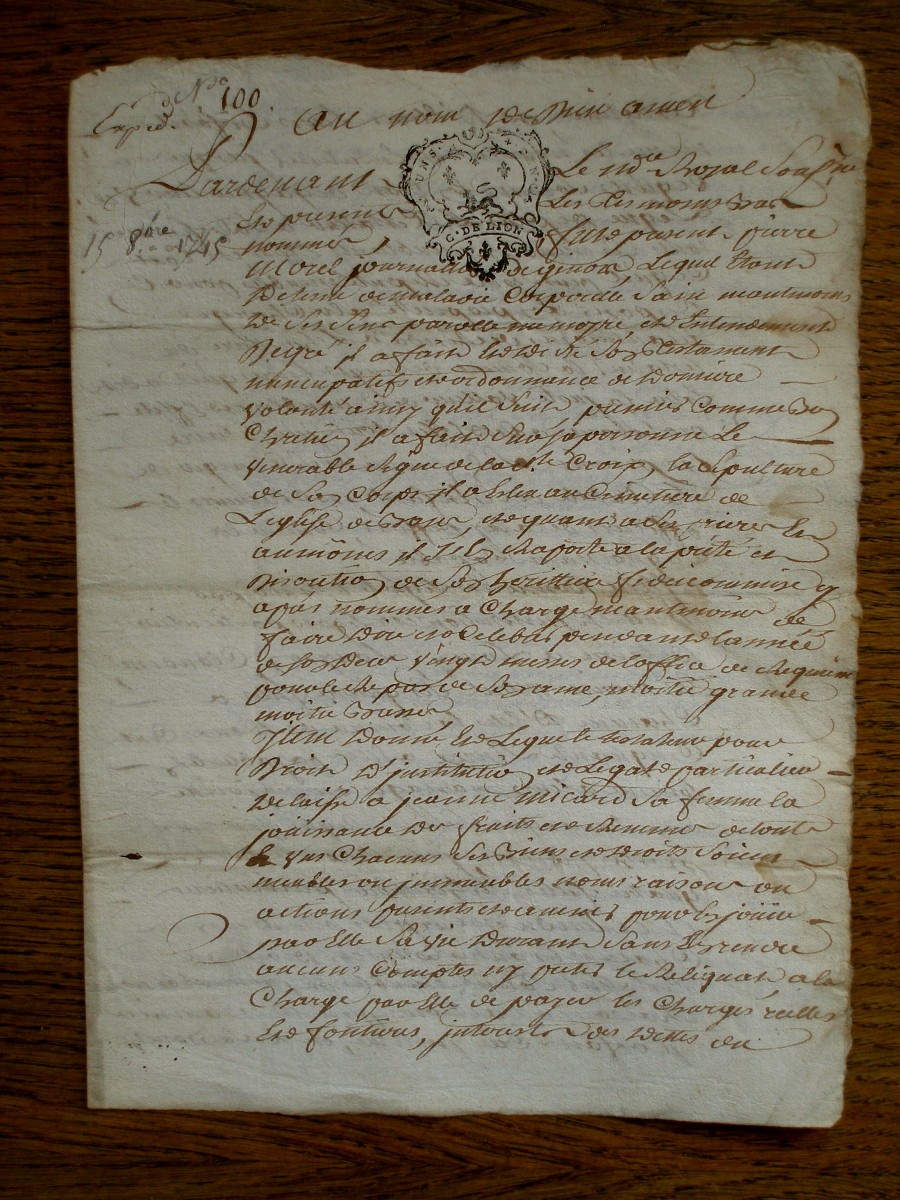 N° 100
Exped.
Au nom de Dieu amen
Pardevant Le no.re Royal Sous.né
et present Les Tesmoins bas
15 8bre 1745
nommés, fut present pierre
C. DE LION
Morel journalier de Lequel Etant
Detenu de maladie Corporelle Sain neantmoins
de Ses Sens parolle memoire et Entendement
De gré il a fait et dicté Son Testament
nuncupatif et ordonnance de Derniere
volonté ainsy qu'il Suit premier Comme bon
Chretien il a fait Sur Sa personne Le
venerable Signe de la Ste Croix, la Sepulture
de Son Corps il a Eslu au Cimetiere de
L'eglise de et quant a Ses prieres et
aumônes il S'en raporte a la pieté et
Discretion de Son heritiere fideicommise cy
après nommée a Charge neantmoins de
faire Dire et Celebrer pendant L'année
de Son Deces vingt messes de L'office de Requiem
pour le Repos de Son ame, moitié grande
moitié basse
Item Donne et Legue le testateur pour
Droit D'institution et Legat particulier
delaisse a jeanne Micard Sa femme La
joüissance Des fruits et Revenus de tout
Un Chacuns Ses Biens et droits Soient
meubles ou jmmeubles noms raisons ou
actions presents et avenir pour les joüir
par Elle Sa vie Durant Sans En rendre
aucuns Comptes ny preter le Reliquat a la
Charge par Elle de payer les Charges reelles
et foncieres, jnterests des dettes du